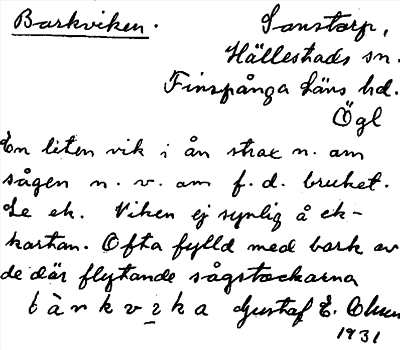 Barkviken.
Sonstorp,
Hällestads sn.
Finspånga Läns hd.
Ögl
En liten vik i ån strax n. om
sågen n. v. om f. d. bruket.
Se ek. Viken ej synlig å ek-
kartan. Ofta fylld med bark av
de där flytande sågstockarna
bàrkvika Gustaf E. Olson
1931